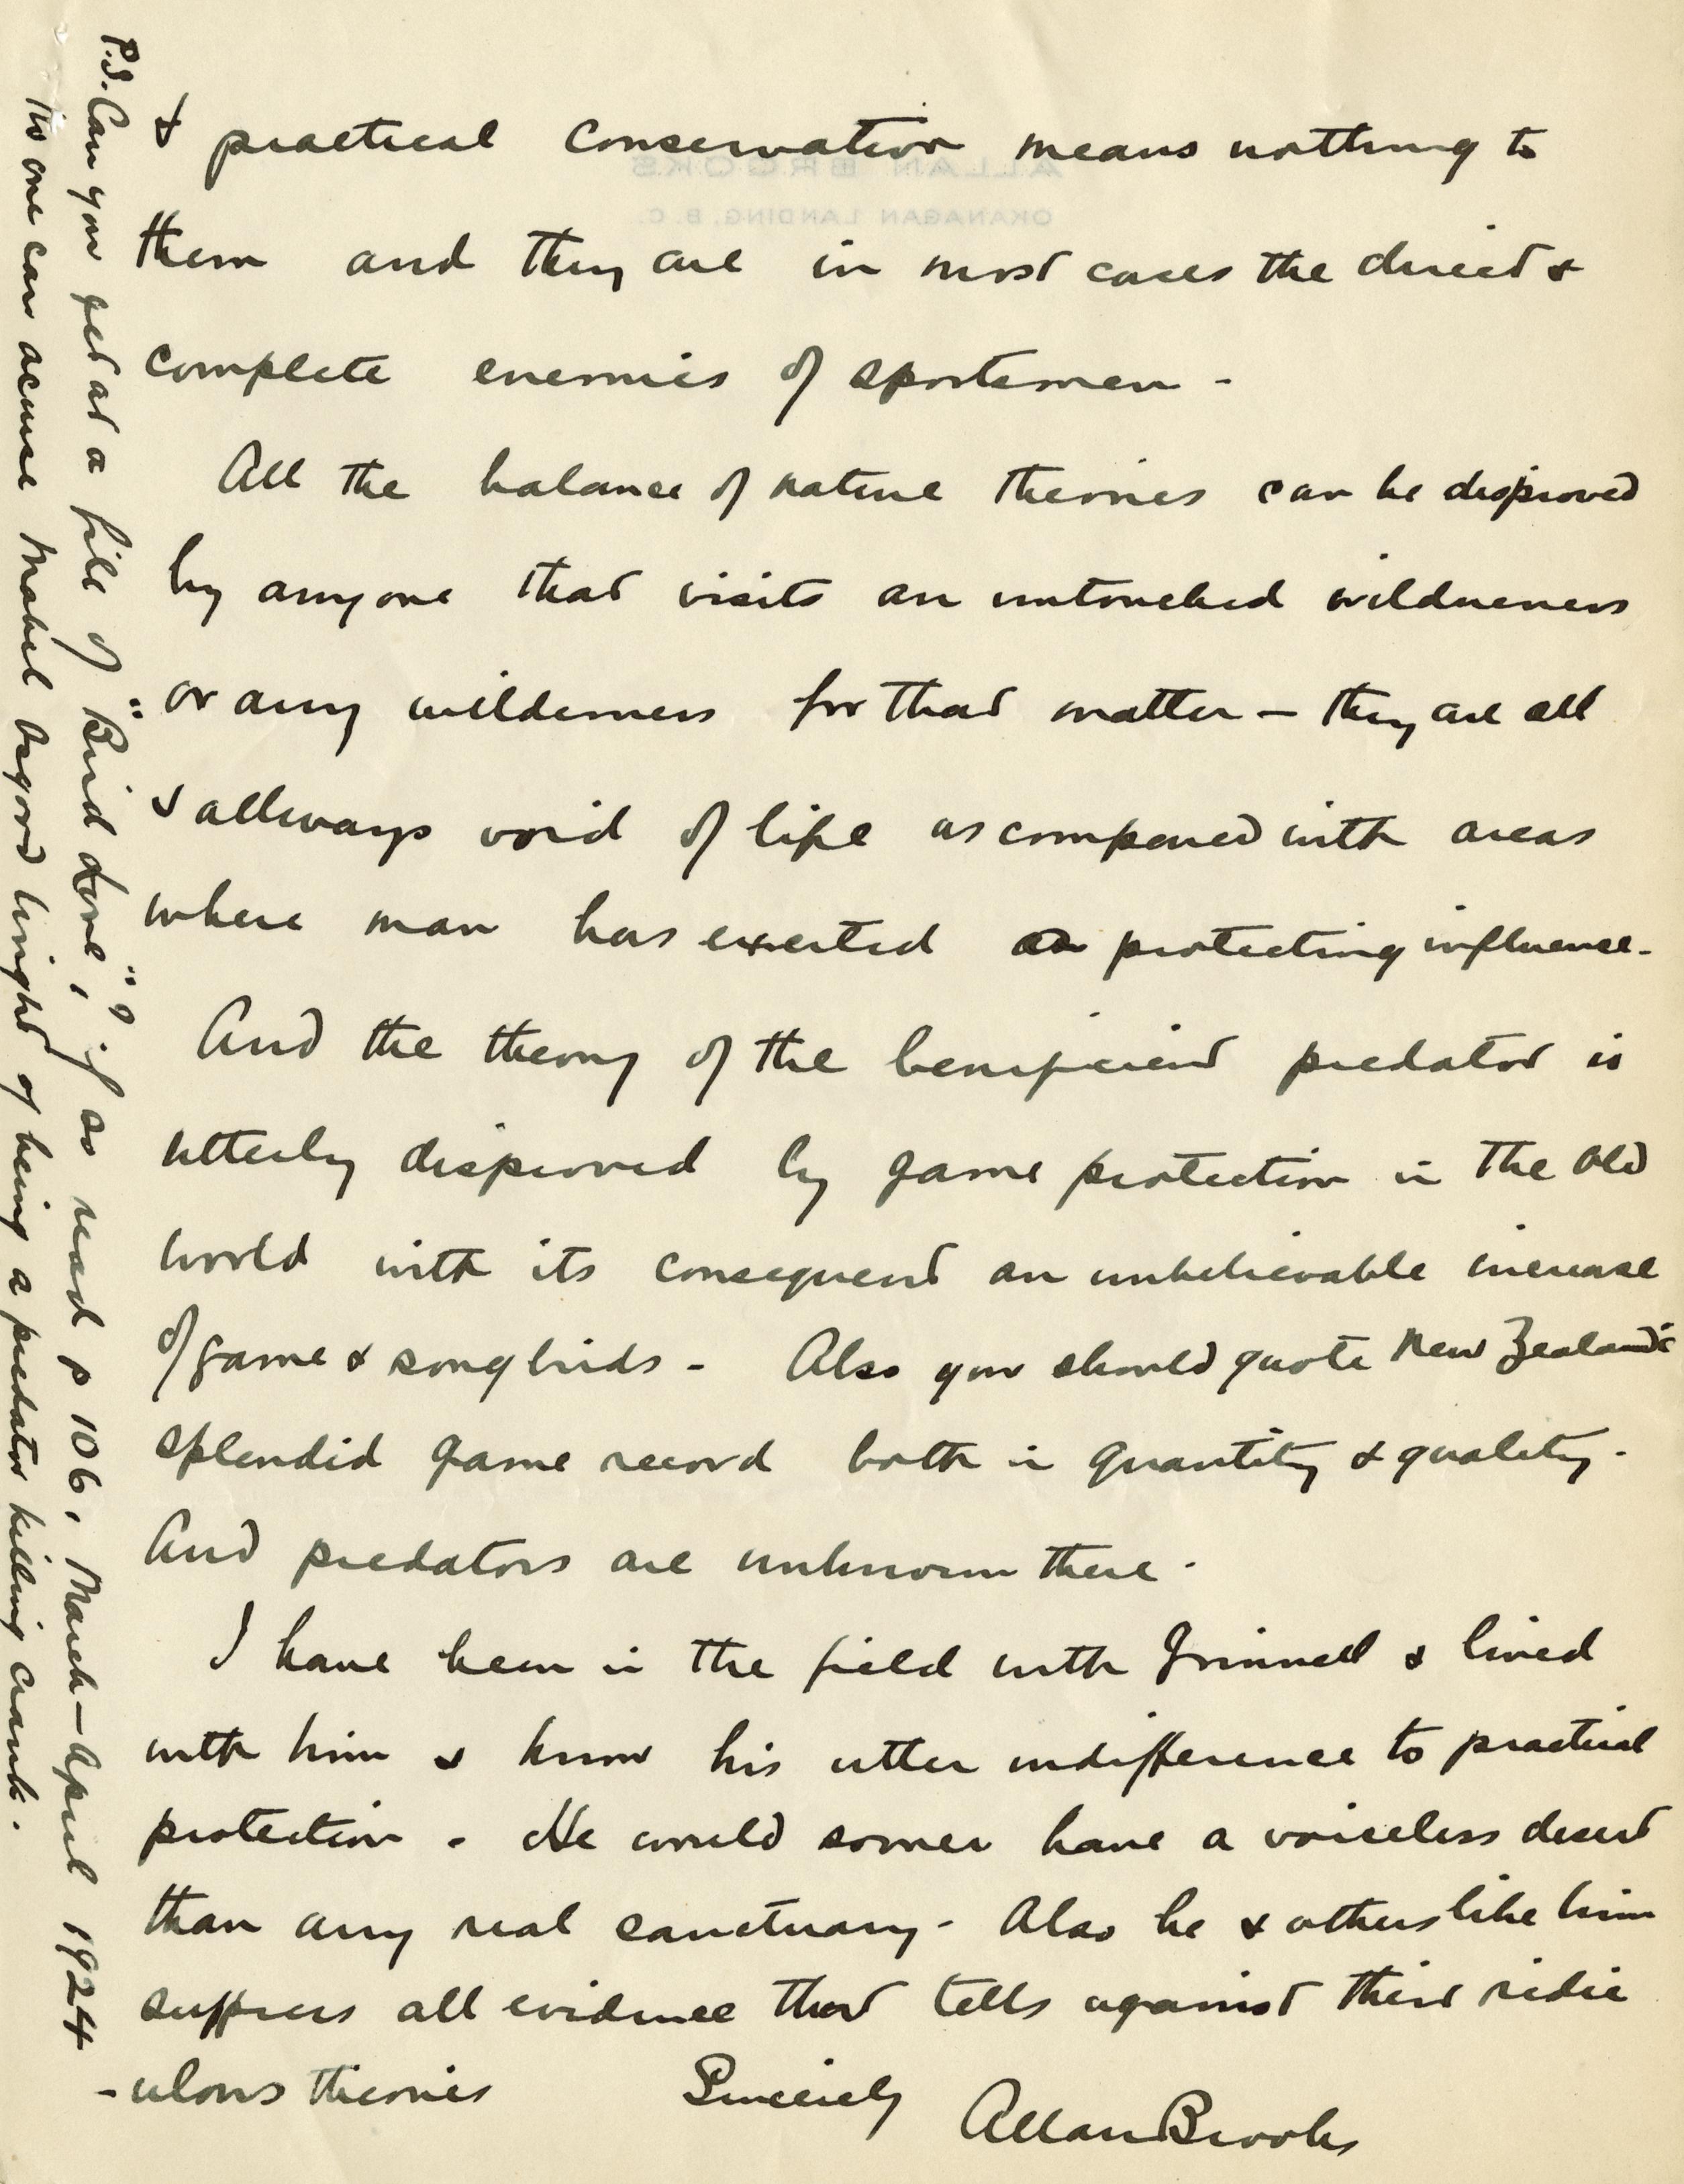 & practical conservation means nothing to
them and they are in most cases the direct &
complete enemies of sportsmen -
All the balance of nature theories can be disproved
by anyone that visits an untouched wilderness
or any wilderness for that matter — they are all
& allways void of life as compared with areas
where man has exerted a protecting influence.
And the theory of the beneficient predator is
utterly disproved by game protection in the old
world with its consequent an unbelievable increase
of game & song birds - Also you should quote New Zealand's
splendid game record both in quantity & quality.
And predators are unknown there.
I have been in the field with Grinnell & lived
with him & know his utter indifference to practical
protection. He would sooner have a voiceless desert
than any real sanctuary. Also he & others like him
suppress all evidence that tells against their ridic
-ulous theories Sincerely Allan Brooks
P.S. Can you get at a file of "Bird Lore", if so read p 106, March—April 1924
No one can acuse Mabel Osgood Wright of being a predator killing crank.
ALLAN BROOKS
OKANAGAN LANDING, B. C.